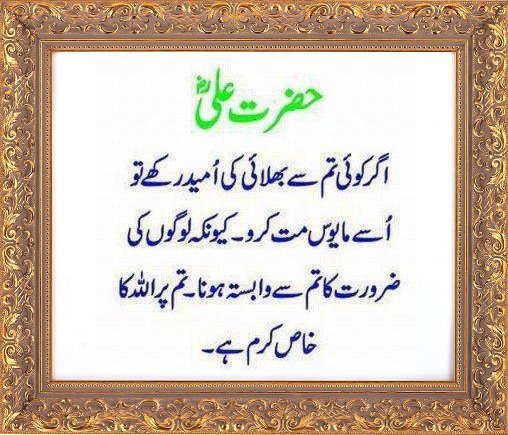 حضرت علیؓ
اگر کوئی تم سے بھلائی کی اُمید رکھے تو
اُسے مایوس مت کرو۔ کیونکہ لوگوں کی
ضرورت کا تم سے وابستہ ہونا۔ تم پر اللہ کا
خاص کرم ہے۔